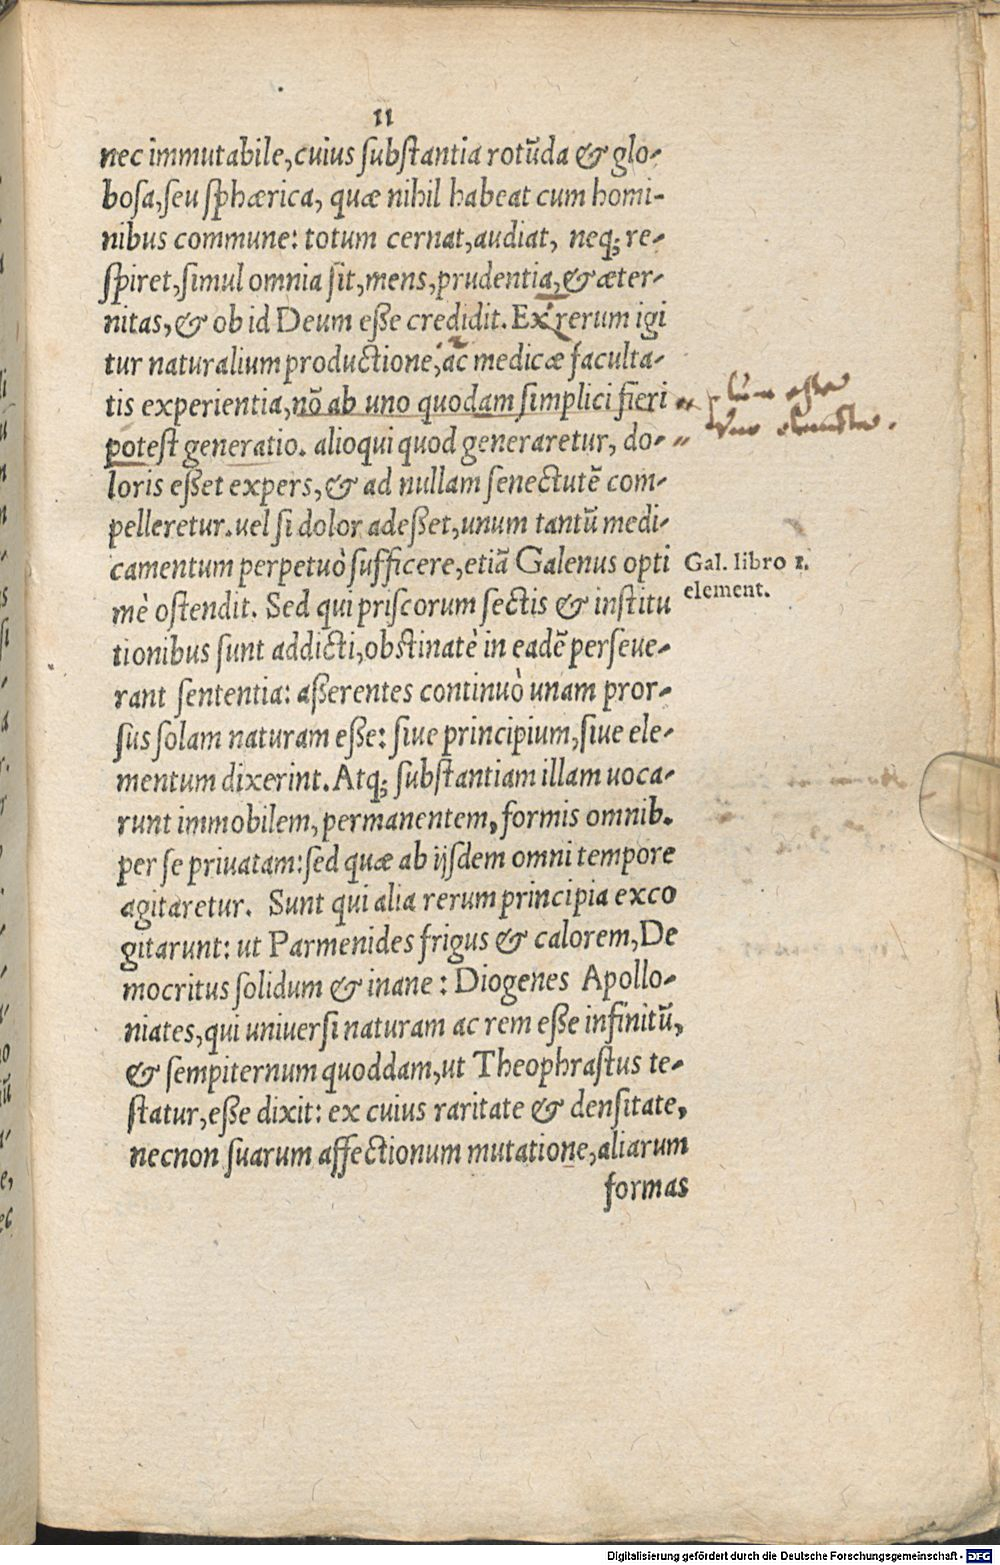 11
nec immutabile, cuius substantia rotũda & glo-
bosa, seu sphærica, quæ nihil habeat cum homi-
nibus commune: totum cernat, audiat, neq; re-
spiret, simul omnia sit, mens, prudentia, & æter-
nitas, & ob id Deum esse credidit. Ex rerum igi
tur naturalium productione, ac medicæ faculta-
tis experientia, nõ ab uno quodam simplici fieri
potest generatio. alioqui quod generaretur, do-
loris esset expers, & ad nullam senectutẽ com-
pelleretur. uel si dolor adesset, unum tantũ medi-
camentum perpetuò sufficere, etiã Galenus opti
mè ostendit. Sed qui priscorum sectis & institu
tionibus sunt addicti, obstinatè in eadẽ perseue-
rant sententia: asserentes continuò unam pror-
sus solam naturam esse: siue principium, siue ele-
mentum dixerint. Atq; substantiam illam uoca-
runt immobilem, permanentem, formis omnib.
per se priuatam: sed quæ ab ijsdem omni tempore
agitaretur. Sunt qui alia rerum principia exco
gitarunt: ut Parmenides frigus & calorem, De
mocritus solidum & inane: Diogenes Apollo-
niates, qui uniuersi naturam ac rem esse infinitũ,
& sempiternum quoddam, ut Theophrastus te-
statur, esse dixit: ex cuius raritate & densitate,
necnon suarum affectionum mutatione, aliarum
formas
Gal. libro 1.
element.
Digitalisierung gefördert durch die Deutsche Forschungsgemeinschaft - DFG